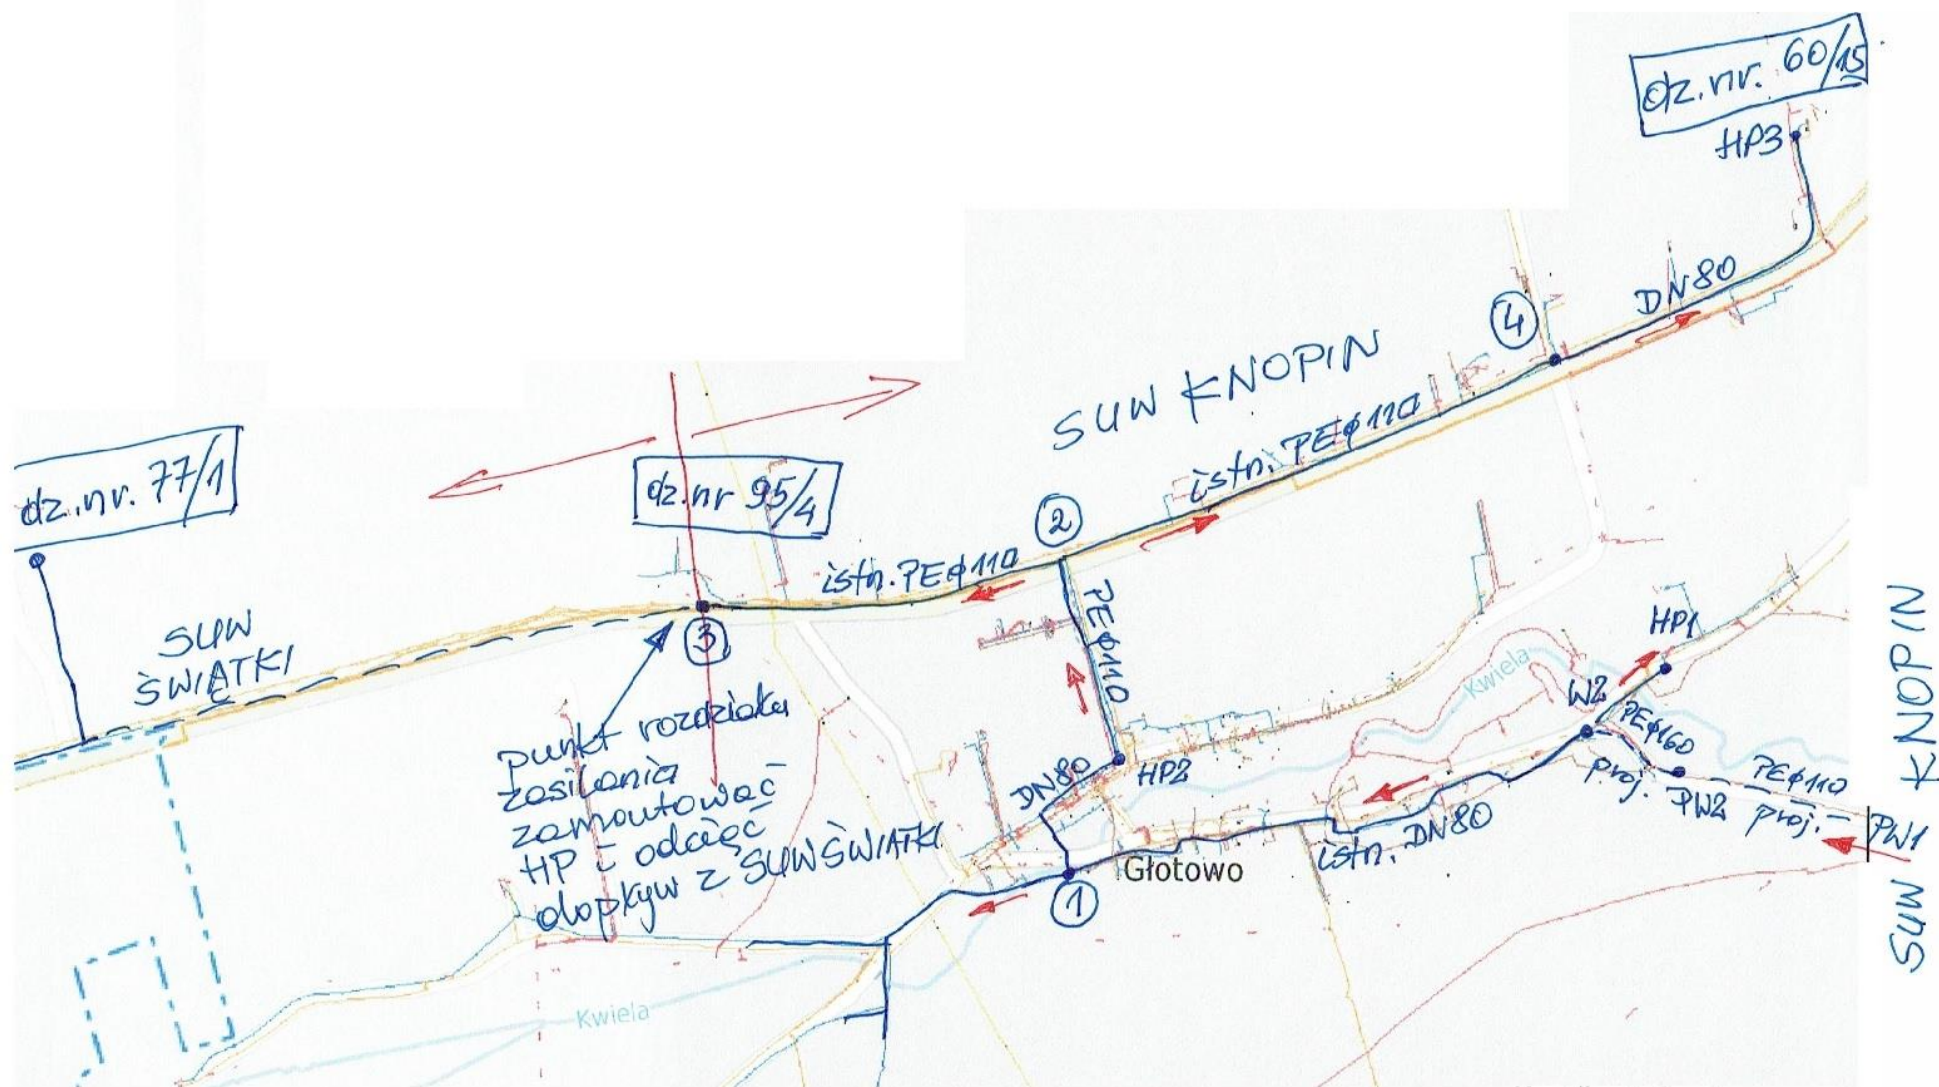 dz.nr. 60/15
HP3
DN80
4
SUW KNOPIN
istn. PEφ110
dz.nr. 77/1
dz.nr 95/4
2
istn. PEφ110
SUW
ŚWIĄTKI
3
PEφ110
HP1
Kwiela
W2
PEφ160
proj.
PW2
PEφ110
proj.
PW1
SUW KNOPIN
punkt rozdziału
zasilania
zamontować
HP i odciąć
dopływ z SUW ŚWIĄTKI
DN80
HP2
istn. DN80
Głotowo
1
Kwiela